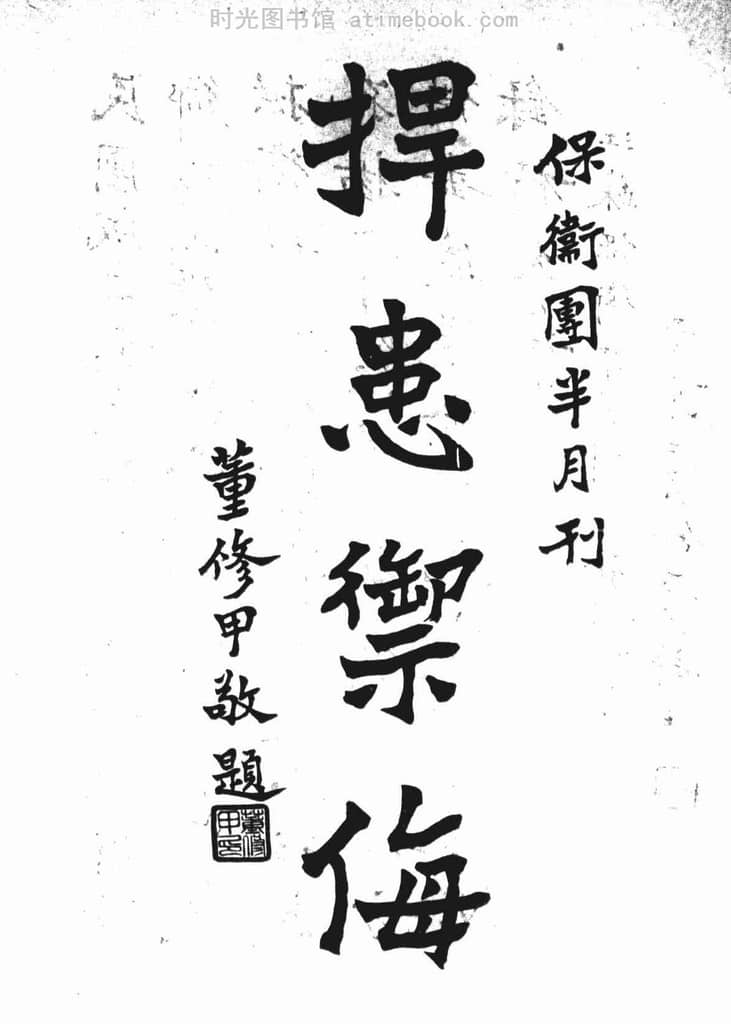 时光图书馆 atimebook.com
保衞團半月刊
捍患禦侮
董修甲敬題
董修甲印